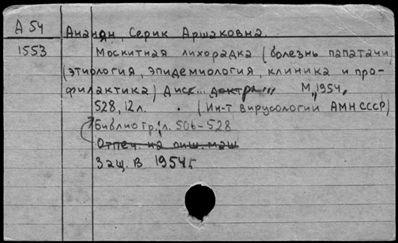 Д 54 Ананян, Серик Аршаковна.
1553 Москитная лихорадка (болезнь папатачи)
(этиология, эпидемиология, клиника и про-
филактика) Дисс... М., 1954,
528, 12л. . (Ин-т вирусологии АМН СССР)
Библиогр.: л. 506-528
Отпеч на пиш. маш
Защ. в 1954г